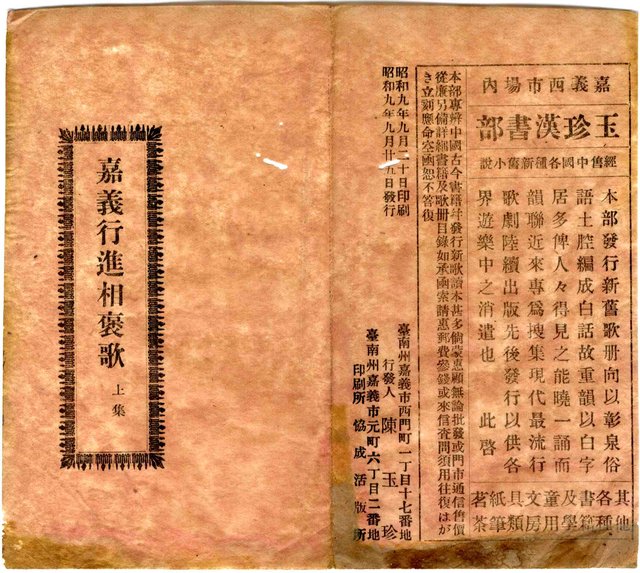 嘉義西市場內
玉珍漢書部
經售中國各種新舊小說
本部發行新舊歌册向以彰泉俗
語土腔編成白話故重韻以白字
居多俾人々得見之能曉一誦而
韻聯近來專爲搜集現代最流行
歌劇陸續出版先後發行以供各
界遊樂中之消遣也 此啓
其他各種書籍及學童用文房具類紙筆茗茶
本部專辨中國古今書籍幷發行新歌讀本甚多倘蒙惠顧無論批發或門市通信售價
從廉另備詳細書籍及歌册目錄如承函索請惠郵費參錢或來信查問須用往復はが
き立刻應命空函恕不答復
昭和九年九月二十日印刷
昭和九年九月廿五日發行
臺南州嘉義市西門町一丁目十七番地
發行人 陳玉珍
臺南州嘉義市元町六丁目二番地
印刷所 協成活版所
嘉義行進相褒歌 上集